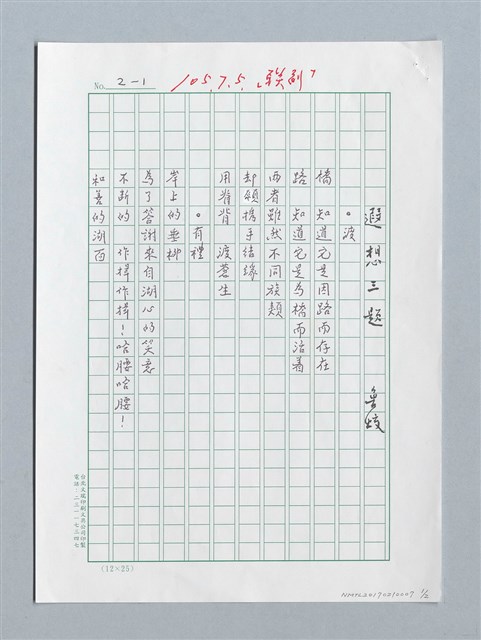 No. 2-1
105.7.5.「聯副」
遐想三題 魯蛟
。渡
橋 知道它是因路而存在
路 知道它是為橋而活著
兩者雖然不同族類
卻願攜手結緣
用脊背 渡蒼生
。有禮
岸上的垂柳
為了答謝來自湖心的笑意
不斷的 作揖作揖!哈腰哈腰!
和善的湖面
(12×25)
NMTL20170310007 1/2